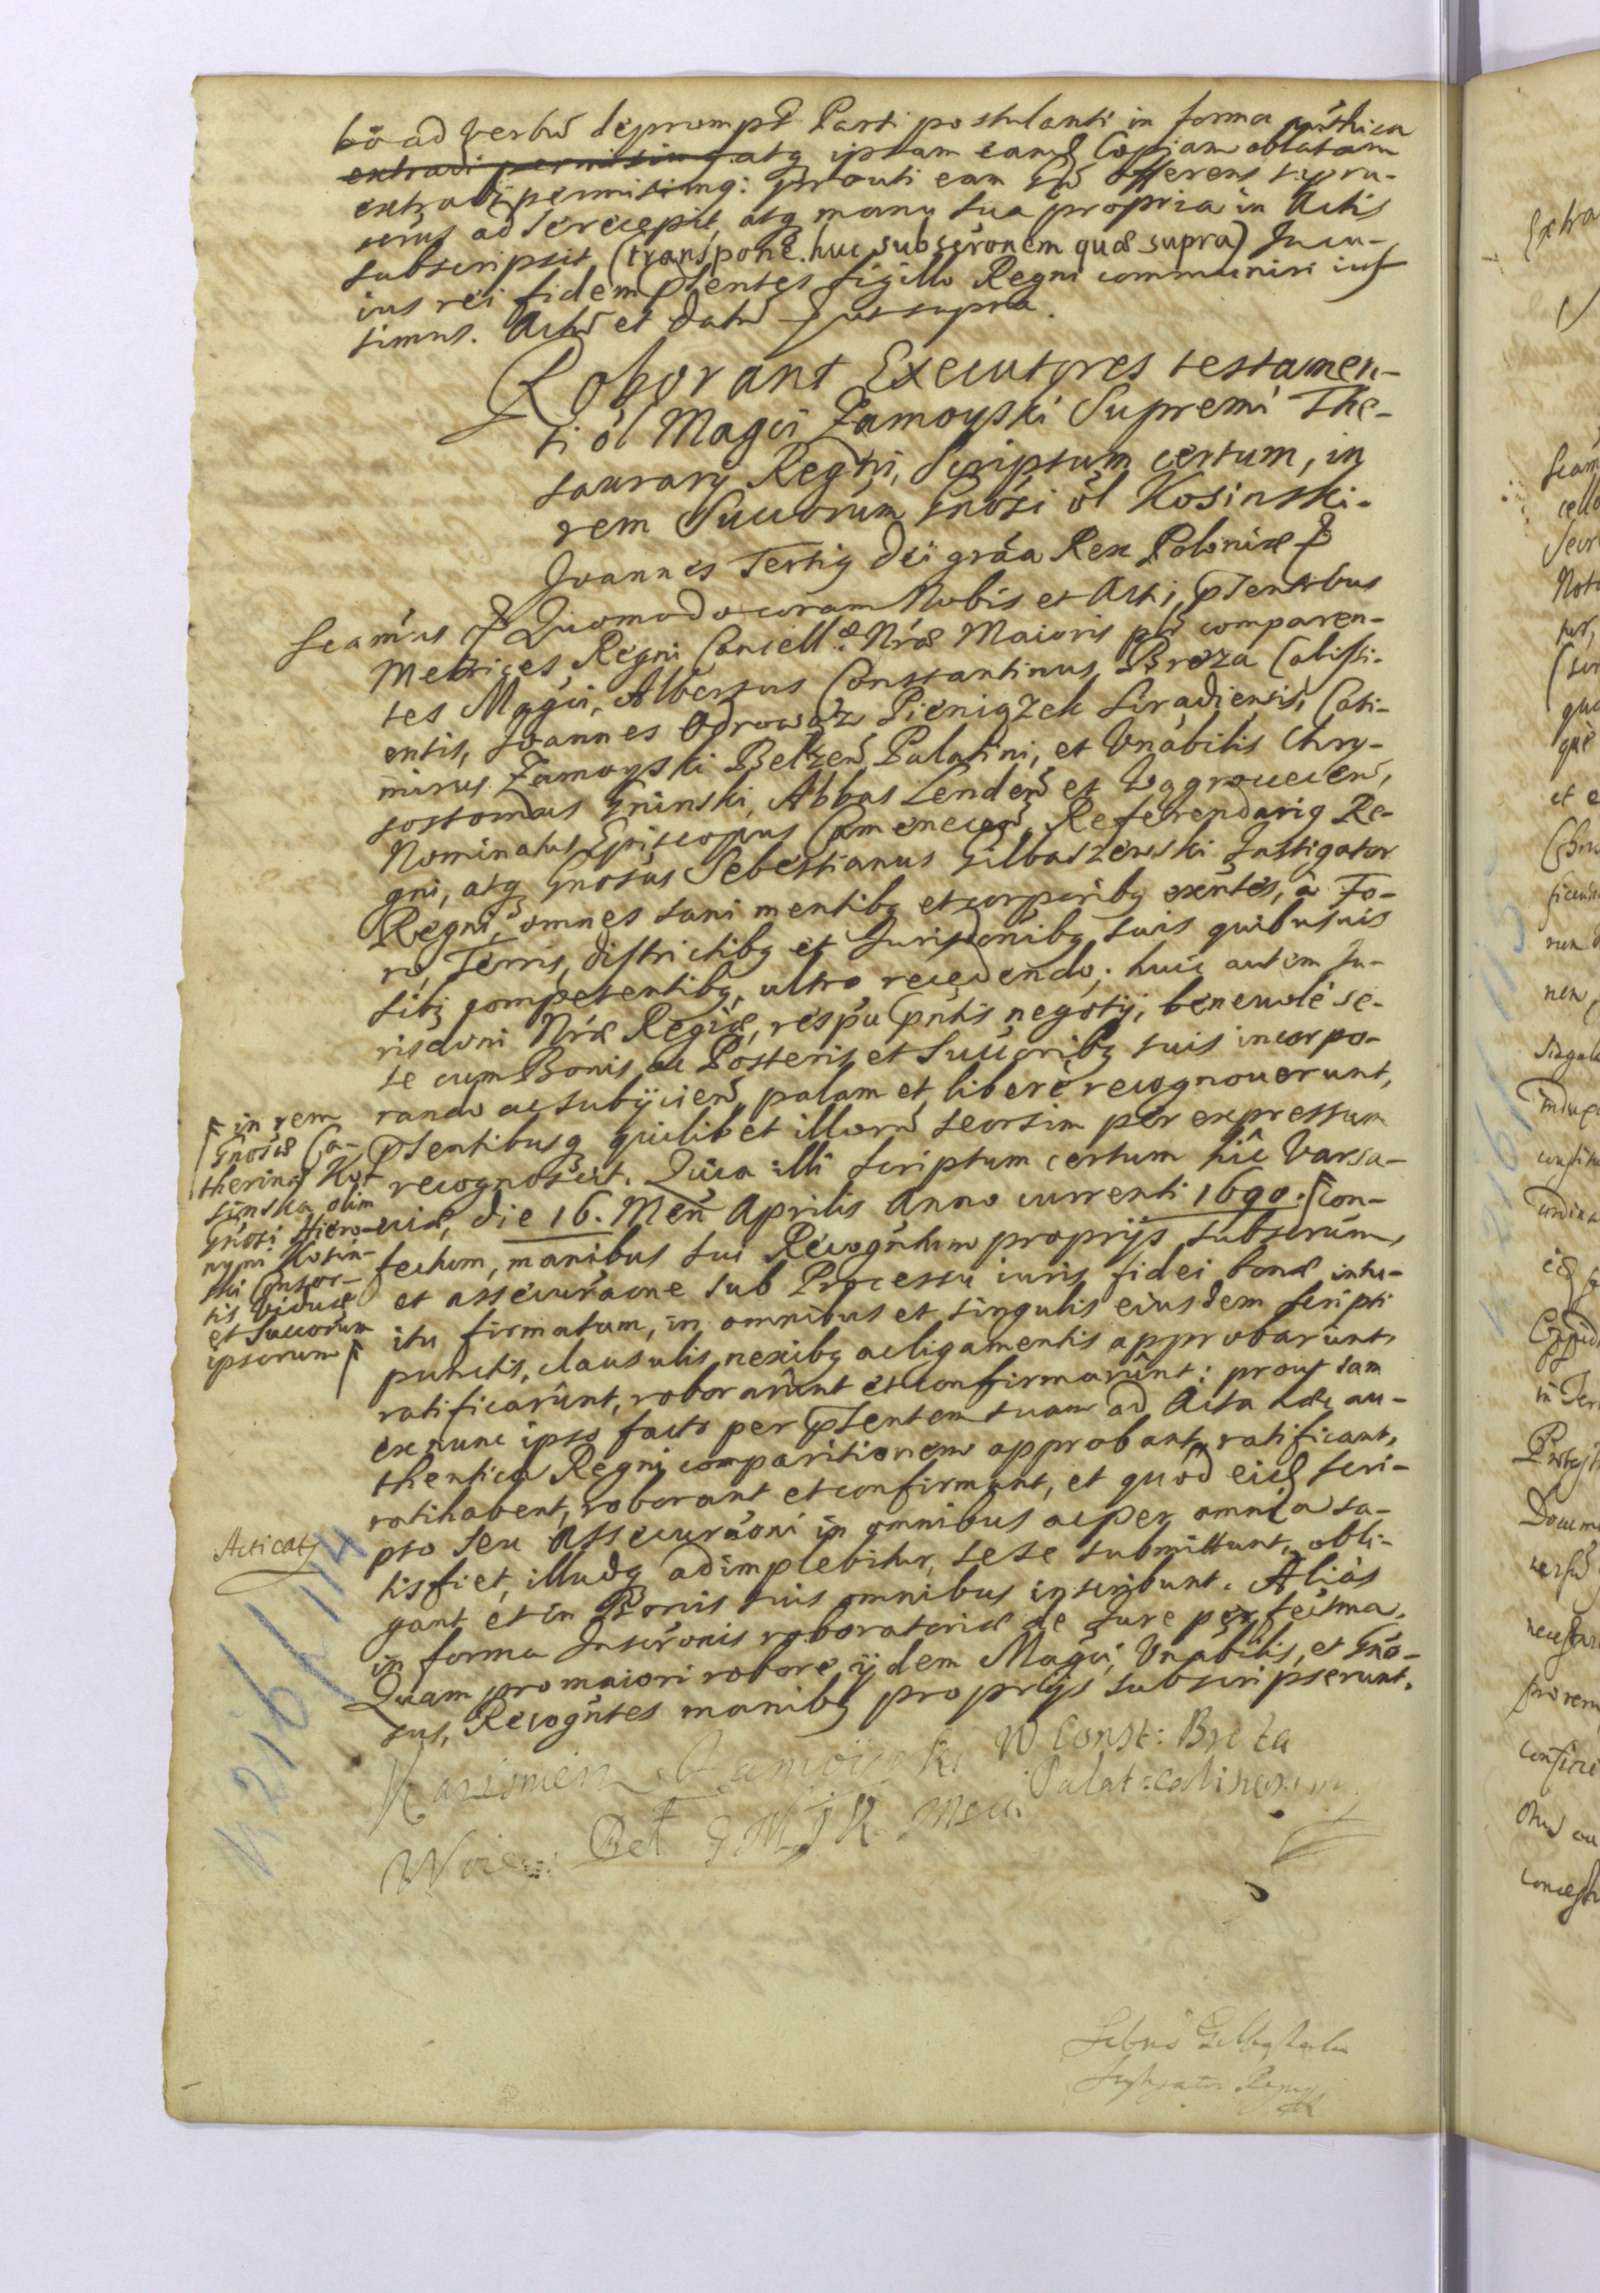 bo ad verbũ deprompt Parti postulanti in forma authica
extradi permisimq atq ipsam eand Copiam oblatam
extradi permisimq: prouti eam offerens supra-
ad se recepit, atq manu sua propria in Actis
subscripsit (transpone huc subscrõnem quæ supra) In cu-
ius rei fidem pntes sigillo Regni communiri ius-
simus. Actũ et datũ ut supra.
Roborant Executores testamen-
ti ol Magci Zamoyski Supremi The-
saurarij Regni, Scriptum certum, in
rem Succorum Gnosi ol Kosinski.
Joannes Tertiq Dei gráa Rex Poloniæ
Scamus Quomodo coram Nobis et Actis pntibus
Metrices Regni Cancell. Nræ Maioris pr comparen-
tes Magci, Albertus Constantinus Breza Calissi-
ensis, Joannes Odrowąz Pieniązek Siradiensis, Casi-
mirus Zamoyski Belzen Palatini, et Vnabilis Chry-
sostomus Gninski, Abbas Lenden et Wągrouecen,
Nominatus Episcopus Camenecen, Referendariq Re-
gni, atq Gnosus Sebestianus Gilbaszewski Instigator
Regni, omnes sani mentibq et corporibq exntes, à Fo-
ro, Terris, districtibq et Jurisdonibq suis quibusuis
sibi competentibq, ultro recedendo; huic autem Ju-
risdoni Nræ Regiæ, respu pntis negotij, beneuole se-
se cum Bonis ac Posteris et Succoribq suis incorpo-
rando ac subijcien, palam et libere recognouerunt,
pntibusq quilibet illorũ seorsim per expressum
recognoscit. Quia illi scriptum certum hic Varsa-
uiæ, die 16. Men Aprilis Anno currenti 1690. Con-
fectum, manibus sui Recogntium proprijs subscrum,
et assecuraone sub Processu iuris fidei bonæ intu-
itu firmatum, in omnibus et singulis eiusdem scripti
punctis, clausulis, nexibq ac ligamentis approbarunt,
ratificarunt, roborarunt et confirmarunt: prout iam
ex nunc ipso facto per pntem suam ad Acta hæc au-
thentica Regni comparitionem approbant, ratificant,
ratihabent, roborant et confirmant, et quod eid scri-
pto seu Assecuraoni in omnibus ac per omnia sa-
tisfiet, illudq adimplebitur, sese submittunt, obli-
gant et in Bonis suis omnibus inscribunt. Aliàs
in forma Inscronis roboratoriæ de Jure
Quam pro maiori robore ijdem Magci, Vnabilis, et Gno-
sus, Recogntes manibq proprijs subscripserunt.
in rem
Gnosæ Ca-
therinæ Ko-
sinska olim
Gnosi Hiero-
nymi Kosin-
ski Consor-
tis Viduæ
et Succorum
ipsorum
Acticat
Kazimierz Zamoiski W Const: Breza
Woie: Bel Palat: calisien
Instigator Regni